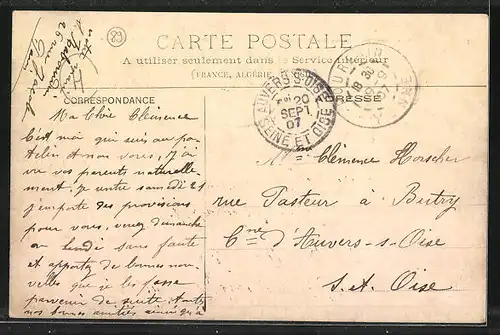 CARTE POSTALE
A utiliser seulement dans le Service intérieur
(FRANCE, ALGÉRIE
CORRESPONDANCE
ADRESSE
AUVERS S OISE
20
SEPT
07
SEINE ET OISE
Ma Chère Clémence
C'est moi qui suis au
et non vous, j'ai
vu vos parents naturelle-
ment. Je rentre samedi 21
j'emporte des provisions
pour vous, venez dimanche
ou lundi sans faute
et apportez de bonnes nou-
velles que je les fasse
parvenir de suite.
nos bonnes amitiés ainsi qu'à
Clémence Horscher
rue Pasteur à Butry
Cne d'Auvers-s-Oise
S. et Oise